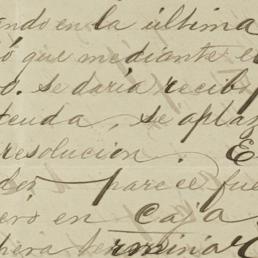 ando en la última
ó que mediante el
o. se daría recib
tenda, se aplan
resolución. E
des parce el fue
ero en caja
terminar